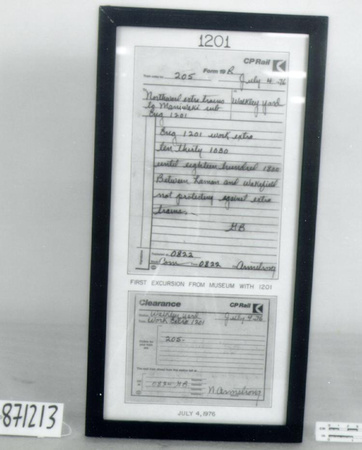 1201
CP Rail
Form 19 R
205 July 4 76
Northward extra trains Walkley yard
to Maniwaki sub
Eng 1201
Eng 1201 work extra
ten thirty 1030
until eighteen hundred 1800
Between Hamon and Wakefield
not protecting against extra
trains.
GB
0822
Com 0822 Armstrong
FIRST EXCURSION FROM MUSEUM WITH 1201
Clearance CP Rail
Walkley yard July 4 76
Work Extra 1201
205
N Armstrong
JULY 4, 1976
871213